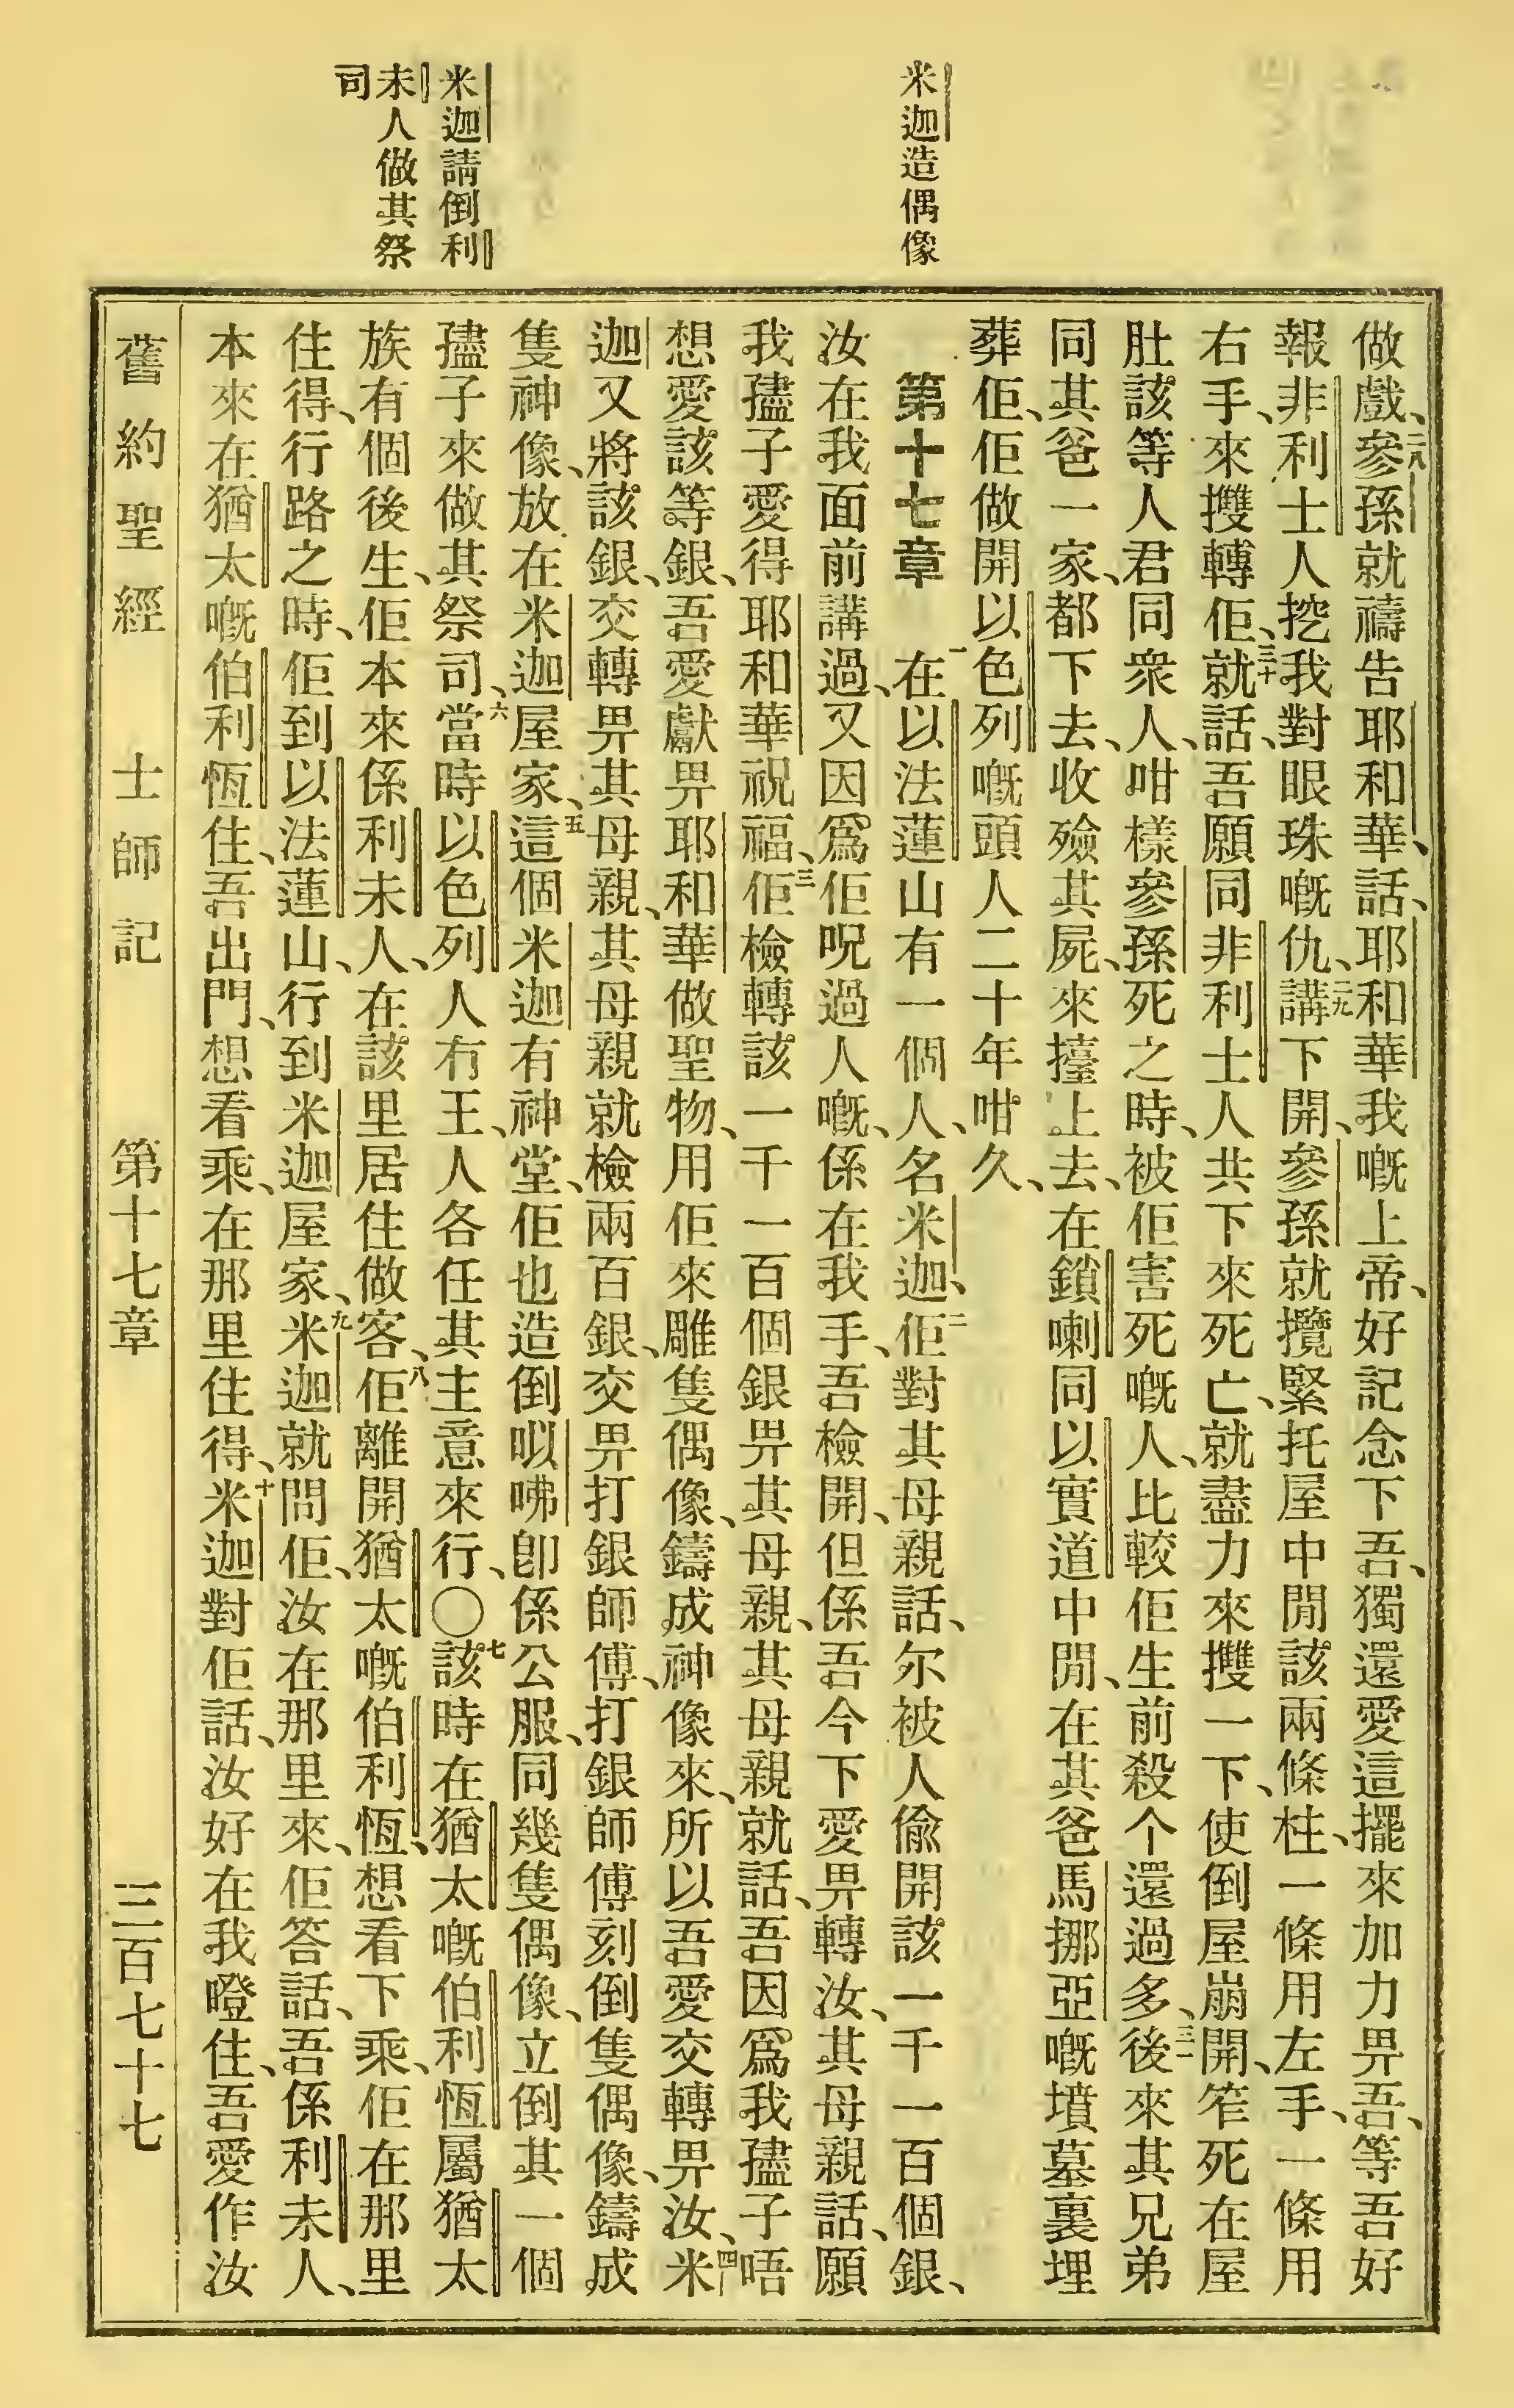 米迦造偶像
米迦請倒利
未人做其祭
司
做戲、二八參孫就禱告耶和華、話、耶和華我嘅上帝、好記念下吾、獨還愛這擺來加力畀吾、等吾好
報非利士人挖我對眼珠嘅仇、二九講下開、參孫就攬緊托屋中間該兩條柱、一條用左手、一條用
右手、來㩳轉佢、三十就話、吾願同非利士人共下來死亡、就盡力來㩳一下、使倒屋崩開、笮死在屋
肚該等人君同衆人、咁樣參孫死之時、被佢害死嘅人、比較佢生前殺个還過多、三一後來其兄弟
同其爸一家、都下去、收殮其屍、來擡上去、在鎖喇同以實道中間、在其爸馬挪亞嘅墳墓裏埋
葬佢、佢做開以色列嘅頭人二十年咁久、
第十七章　一在以法蓮山有一個人、名米迦、二佢對其母親話、尔被人偷開該一千一百個銀、
汝在我面前講過、又因爲佢呪過人嘅、係在我手、吾檢開、但係吾今下愛畀轉汝、其母親話、願
我孻子愛得耶和華祝福、三佢檢轉該一千一百個銀畀其母親、其母親就話、吾因爲我孻子唔
想愛該等銀、吾愛獻畀耶和華做聖物、用佢來雕隻偶像、鑄成神像來、所以吾愛交轉畀汝、四米
迦又將該銀、交轉畀其母親、其母親就檢兩百銀、交畀打銀師傅、打銀師傅刻倒隻偶像、鑄成
隻神像、放在米迦屋家、五這個米迦有神堂、佢也造倒㕽咈卽係公服、同幾隻偶像、立倒其一個
孻子來做其祭司、六當時以色列人冇王、人各任其主意來行、〇七該時在猶太嘅伯利恆屬猶太
族有個後生、佢本來係利未人、在該里居住做客、八佢離開猶太嘅伯利恆、想看下乘、佢在那里
住得、行路之時、佢到以法蓮山、行到米迦屋家、九米迦就問佢、汝在那里來、佢答話、吾係利未人、
本來在猶太嘅伯利恆住、吾出門、想看乘、在那里住得、十米迦對佢話、汝好在我嶝住、吾愛作汝
舊約聖經　士師記　第十七章　三百七十七